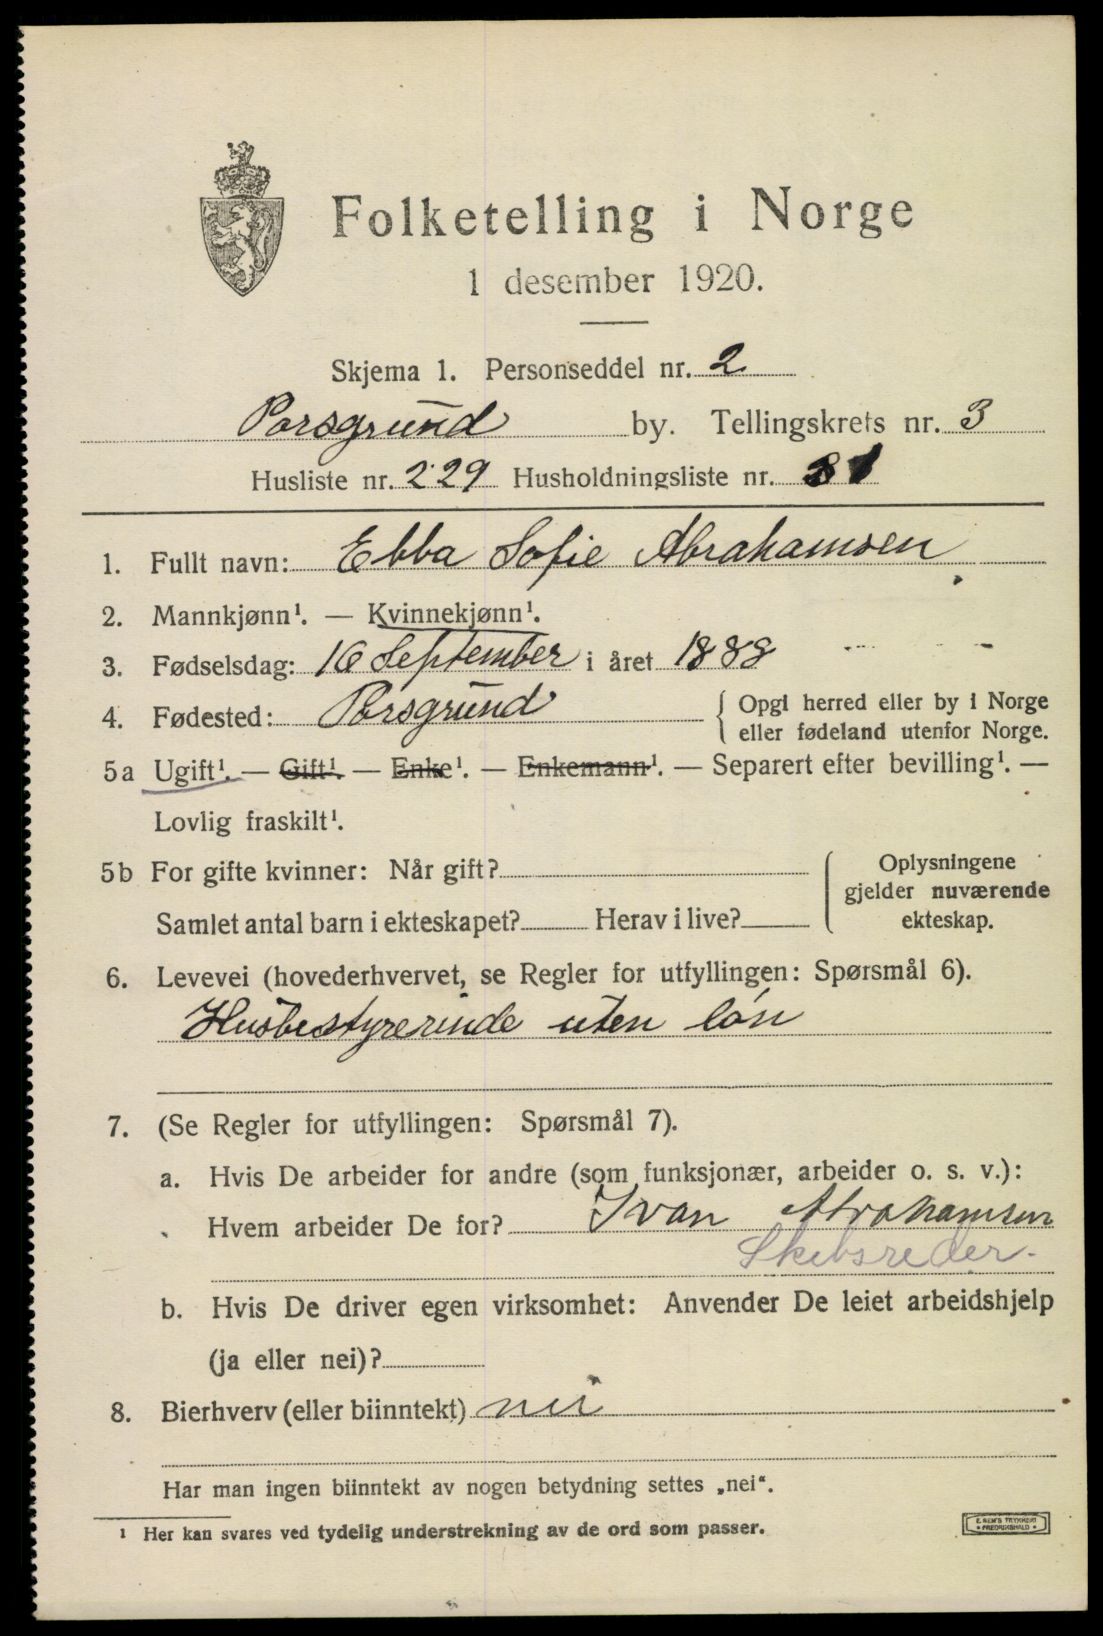 Folketelling i Norge
1 desember 1920.
Skjema 1. Personseddel nr. 2
Porsgrund by. Tellingskrets nr. 3
Husliste nr. 229 Husholdningsliste nr.
1. Fullt navn: Ebba Sofie Abrahamsen
2. Mannkjønn¹. — Kvinnekjønn¹.
3. Fødselsdag: 16 September i året 1888
4. Fødested: Porsgrund { Opgi herred eller by i Norge
eller fødeland utenfor Norge.
5a Ugift¹. — Gift¹. — Enke¹. — Enkemann¹. — Separert efter bevilling¹. —
Lovlig fraskilt¹.
5b For gifte kvinner: Når gift? { Oplysningene
gjelder nuværende
Samlet antal barn i ekteskapet? Herav i live? ekteskap.
6. Levevei (hovederhvervet, se Regler for utfyllingen: Spørsmål 6).
Husbestyrerinde uten løn
7. (Se Regler for utfyllingen: Spørsmål 7).
a. Hvis De arbeider for andre (som funksjonær, arbeider o. s. v.):
Hvem arbeider De for? Ivan Abrahamsen
Skibsreder.
b. Hvis De driver egen virksomhet: Anvender De leiet arbeidshjelp
(ja eller nei)?
8. Bierhverv (eller biinntekt) nei
Har man ingen biinntekt av nogen betydning settes „nei“.
¹ Her kan svares ved tydelig understrekning av de ord som passer.
E. SEM'S TRYKKERI
• FREDRIKSHALD •